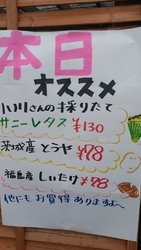 本日
オススメ
八川さんの採りたて
サニーレタス ¥130
茨城産 とうや ¥78
福島産 しいたけ ¥98
他にも お買得 あります〜